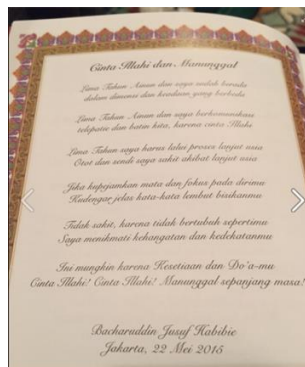 Cinta Illahi dan Manunggal
Lima Tahun Ainun dan saya sudah berada
dalam dimensi dan keadaan yang berbeda
Lima Tahun Ainun dan saya berkomunikasi
telepatie dan batin kita, karena cinta Illahi
Lima Tahun saya harus lalui proses lanjut usia
Otot dan sendi saya sakit akibat lanjut usia
Jika kupejamkan mata dan fokus pada dirimu
Kudengar jelas kata-kata lembut bisikanmu
Tidak sakit, karena tidak bertubuh sepertimu
Saya menikmati kehangatan dan kedekatanmu
Ini mungkin karena Kesetiaan dan Do'a-mu
Cinta Illahi! Cinta Illahi! Manunggal sepanjang masa!
Bacharuddin Jusuf Habibie
Jakarta, 22 Mei 2015